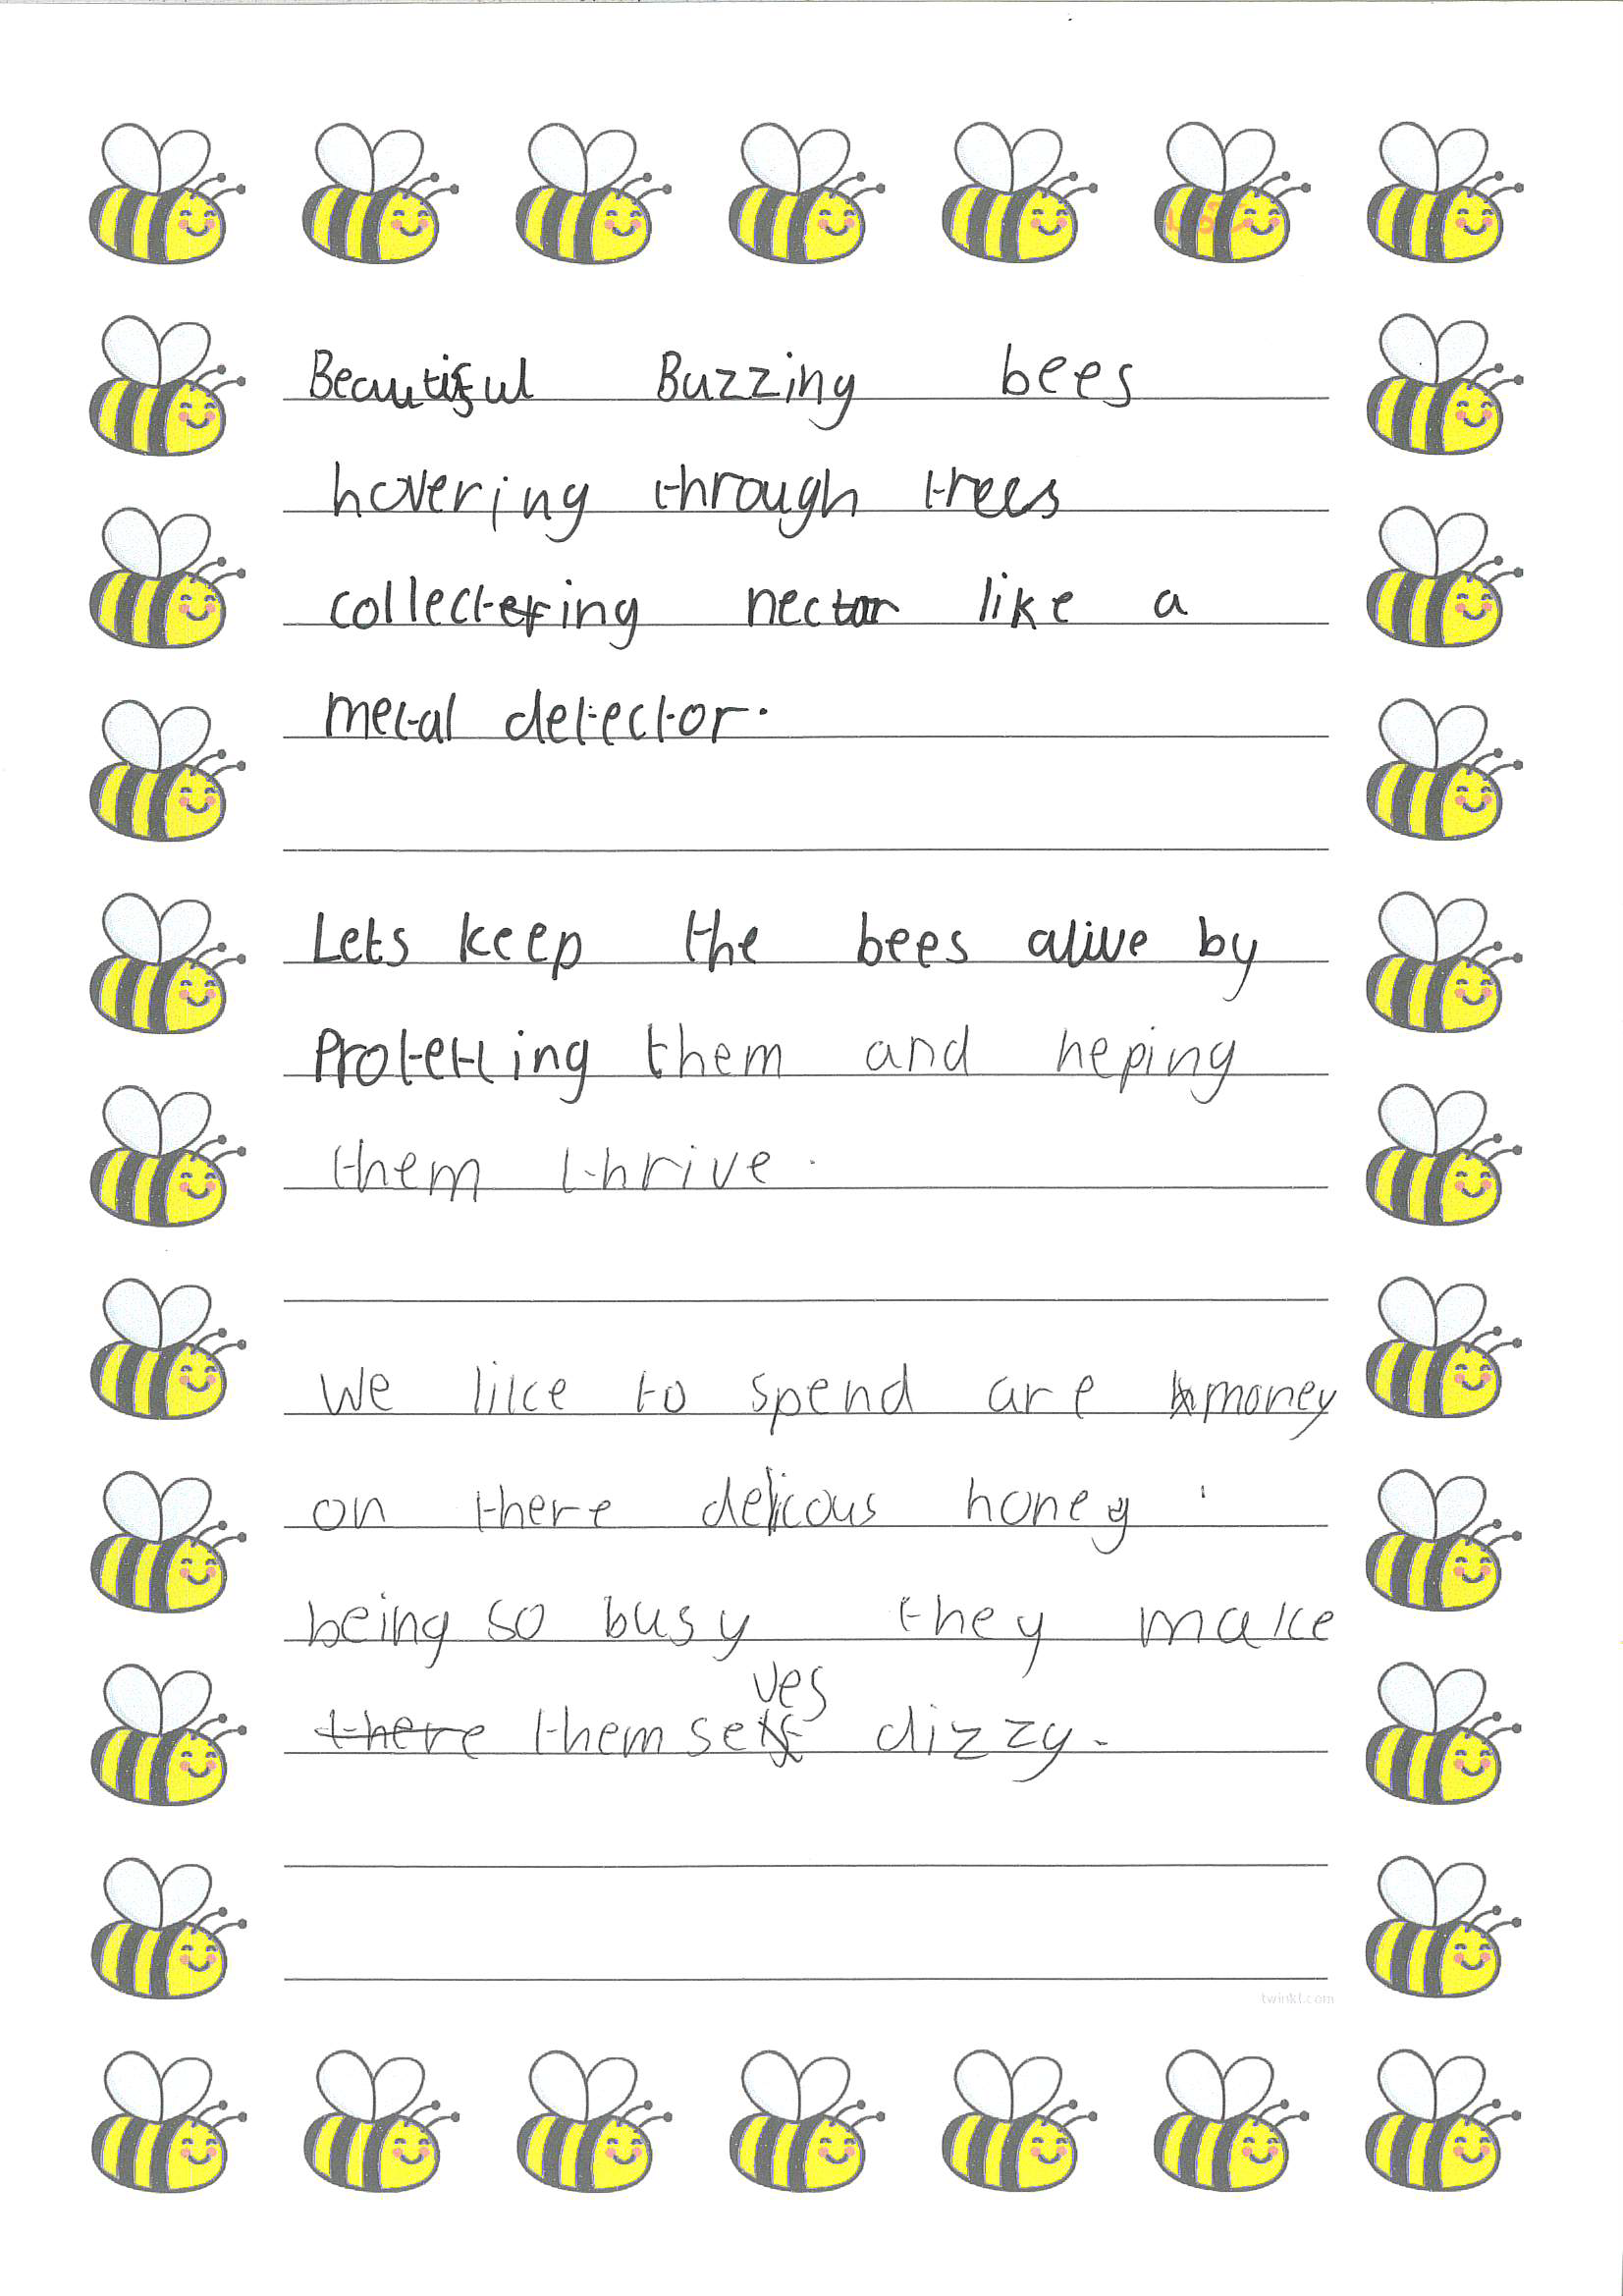 Beautiful Buzzing bees
hovering through trees
collectering nector like a
metal detector.
Lets keep the bees alive by
Protetting them and heping
them thrive.
We like to spend are money
on there delicous honey.
being so busy they make
there themselves dizzy.
twinkl.com